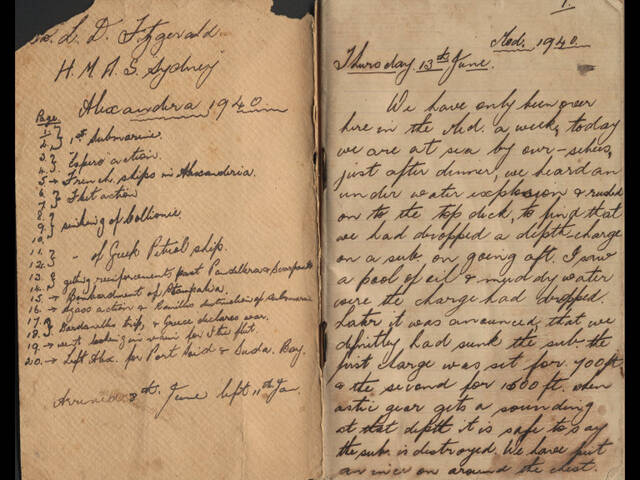 L. D. Fitzgerald.
H.M.A.S. Sydney
Alexandera 1940
Page.
1. }
2. } 1st Submarine.
3. }
4. } Espero action.
5 → French ships in Alexanderia.
6. }
7. } Fleet action
8. }
9. } sinking of Collionie.
10. }
11. }
12. } " of Greek Petrol ship.
13. }
14. } getting reinforcements past Pandellera &
15. → Bombardment of Stampalia.
16. → action & destruction of submarine
17. }
18. } Dardanells trip, & Greece declares war.
19. → went looking in vain for the flt.
20. → Left Alex. for Port Said & Suda. Bay.
Arrived 8th. June left 11th Jan.
1.
Med. 1940
Thursday 13th June.
We have only been over
here in the Med. a week, today
we are at sea by our-selves,
just after dinner, we heard an
under water explosion & rushed
on to the top deck, to find that
we had dropped a depth-charge
on a sub, on going aft. I saw
a pool of oil & muddy water
were the charge had dropped.
Later it was anounced, that we
definitly had sunk the sub. the
first charge was set for 400ft.
& the second for 1500ft. when
astic gear gets a sounding
at that depth it is safe to say
the sub. is destroyed. We have put
on around the chest.